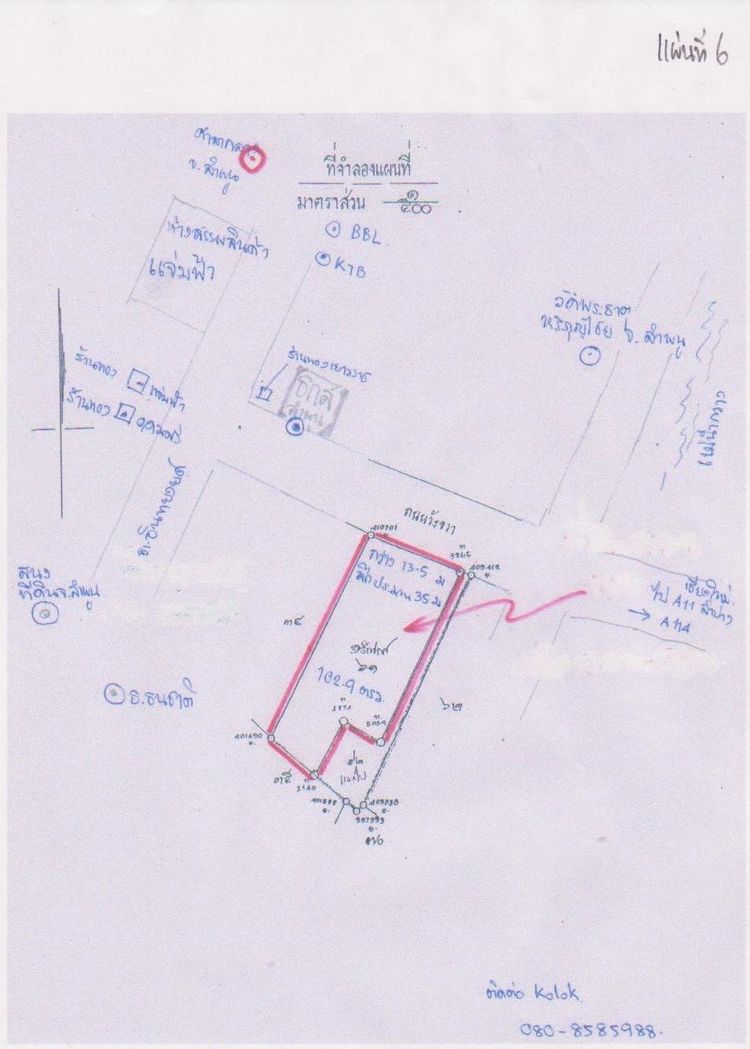 แผ่นที่ 6
ศาลากลาง
จ. ลำพูน
ที่จำลองแผนที่
มาตราส่วน ๑/๕๐๐
BBL
KTB
ห้างสรรพสินค้า
แจ่มฟ้า
วัดพระธาตุ
หริภุญไชย จ. ลำพูน
ร้านทองเยาวราช
ธกส
ลำพูน
ร้านทอง แจ่มฟ้า
ร้านทอง
แม่น้ำกวง
ถ.อินทยงยศ
ถนนวังขวา
410701
3266
409412
กว้าง 13.5 ม
ลึกประมาณ 35 ม
สนง
ที่ดินจ.ลำพูน
เชียงใหม่
ไป A11 ลำปาง
→ A114
๓๔
๖๑
102.9 ตรว.
๖๒
ธ.ธนชาติ
401490
๓๕
3140
๗๐
ติดต่อ Kolok
080-8585988